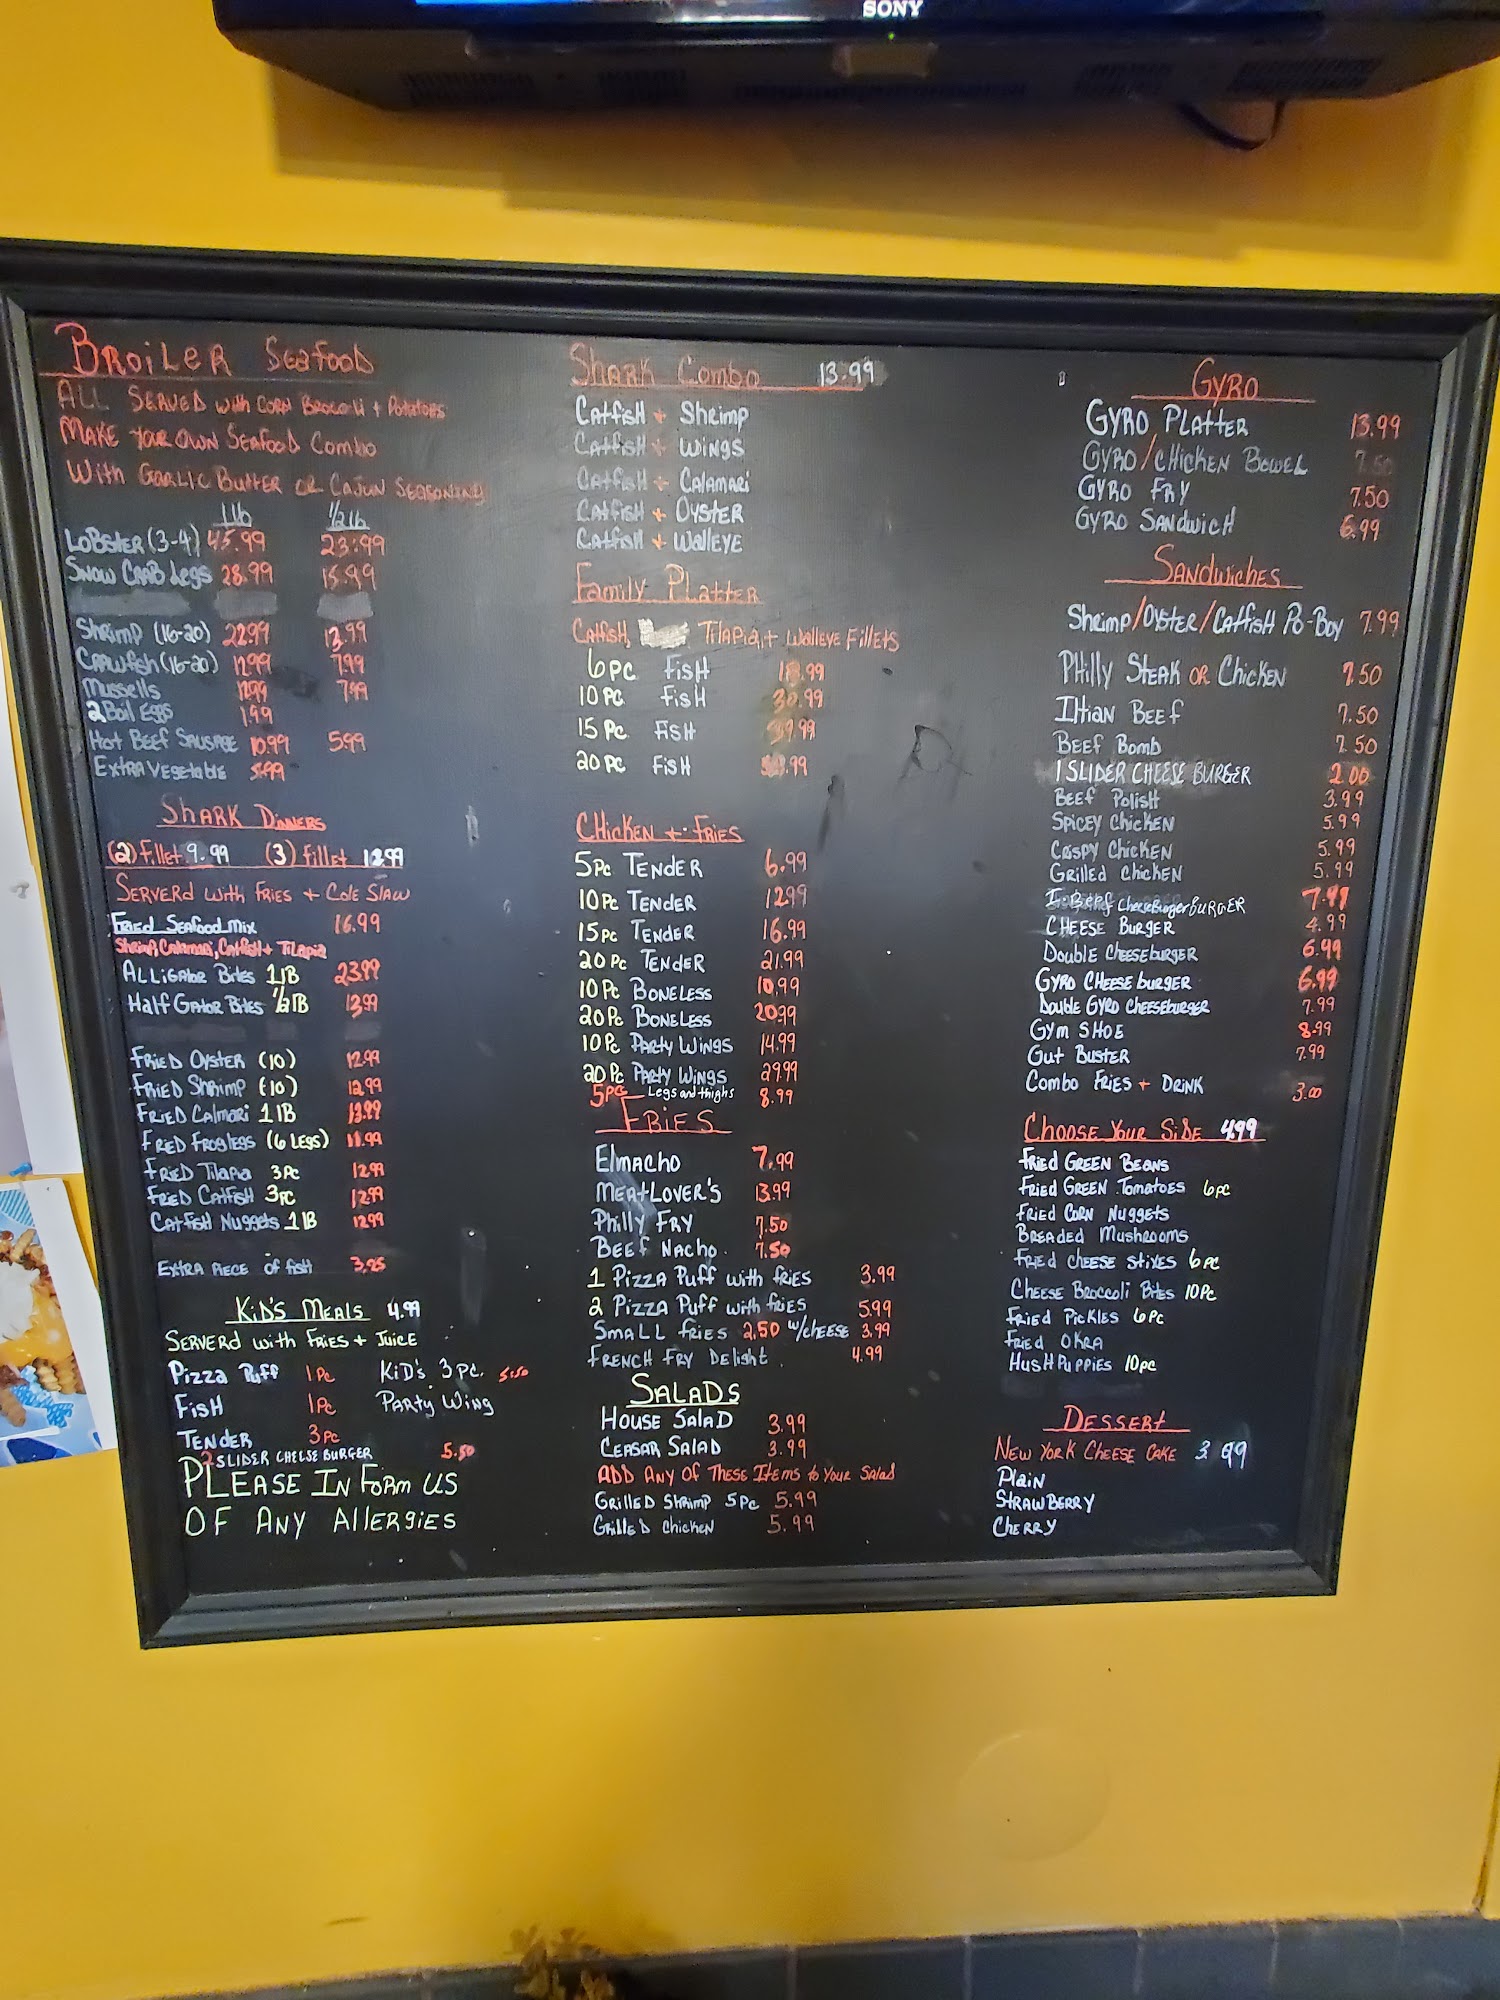 SONY
Broiler Seafood
All Served with Corn Brocoli + Potatoes
Make Your Own Seafood Combo
With Garlic Butter or Cajun Seasoning
1 lb 1/2 lb
Lobster (3-4) 45.99 23.99
Snow Crab Legs 28.99 15.99
Shrimp (16-20) 22.99 13.99
Crawfish (16-20) 12.99 7.99
Mussells 12.99 7.99
2 Boil Eggs 1.99
Hot Beef Sausage 10.99 5.99
Extra Vegetable 5.99
Shark Dinners
(2) Fillet 9.99 (3) Fillet 12.99
Serverd with Fries + Cole Slaw
Fried Seafood Mix 16.99
Shrimp, Calamari, Catfish + Tilapia
Alligator Bites 1 lB 23.99
Half Gator Bites 1/2 lB 13.99
Fried Oyster (10) 12.99
Fried Shrimp (10) 12.99
Fried Calmari 1 lB 13.99
Fried Froglegs (6 Legs) 11.99
Fried Tilapia 3pc 12.99
Fried Catfish 3pc 12.99
Catfish Nuggets 1 lB 12.99
Extra Piece of fish 3.95
Kid's Meals 4.99
Serverd with Fries + Juice
Pizza Puff 1pc Kid's 3pc. 5.50
Fish 1pc Party Wing
Tender 3pc
2 Slider Cheese Burger 5.50
Please In Form us
Of Any Allergies
Shark Combo 13.99
Catfish + Shrimp
Catfish + Wings
Catfish + Calamari
Catfish + Oyster
Catfish + Walleye
Family Platter
Catfish, Tilapia, + Walleye Fillets
6pc Fish 18.99
10pc Fish 30.99
15pc Fish .99
20pc Fish .99
Chicken + Fries
5pc Tender 6.99
10pc Tender 12.99
15pc Tender 16.99
20pc Tender 21.99
10pc Boneless 10.99
20pc Boneless 20.99
10pc Party Wings 14.99
20pc Party Wings 29.99
5pc Legs and thighs 8.99
Fries
Elmacho 7.99
Meatlover's 13.99
Philly Fry 7.50
Beef Nacho 7.50
1 Pizza Puff with fries 3.99
2 Pizza Puff with fries 5.99
Small fries 2.50 w/cheese 3.99
French Fry Delight 4.99
Salads
House Salad 3.99
Ceasar Salad 3.99
Add Any Of These Items to Your Salad
Grilled Shrimp 5pc 5.99
Grilled Chicken 5.99
Gyro
Gyro Platter 13.99
Gyro/Chicken Bowel 7.50
Gyro Fry 7.50
Gyro Sandwich 6.99
Sandwiches
Shrimp/Oyster/Catfish Po-Boy 7.99
Philly Steak or Chicken 7.50
Itian Beef 7.50
Beef Bomb 7.50
1 Slider Cheese Burger 2.00
Beef Polish 3.99
Spicey Chicken 5.99
Crispy Chicken 5.99
Grilled Chicken 5.99
Beef CheeseBurger Burger 7.99
Cheese Burger 4.99
Double Cheeseburger 6.99
Gyro Cheeseburger 6.99
Double Gyro Cheeseburger 7.99
Gym Shoe 8.99
Gut Buster 7.99
Combo Fries + Drink 3.00
Choose Your Side 4.99
Fried Green Beans
Fried Green Tomatoes 6pc
Fried Corn Nuggets
Breaded Mushrooms
Fried cheese stixes 6pc
Cheese Broccoli Bites 10pc
Fried Pickles 6pc
Fried Okra
Hushpuppies 10pc
Dessert
New York Cheese Cake 3.99
Plain
Strawberry
Cherry